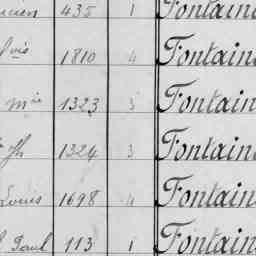 435 1 Fontain
1810 4 Fontain
Mie 1323 3 Fontain
1324 3 Fontain
Louis 1698 4 Fontain
Paul 113 1 Fontain